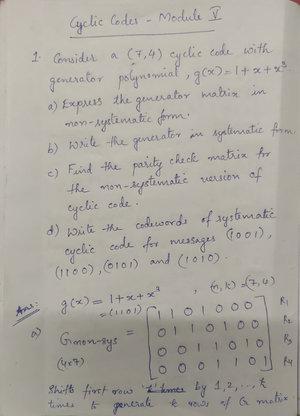 Cyclic Codes - Module V
1. Consider a (7,4) cyclic code with
generator polynomial, g(x)=1+x+x³
a) Express the generator matrix in
non-systematic form.
b) Write the generator in systematic form.
c) Find the parity check matrix for
the non-systematic version of
cyclic code.
d) Write the codewords of systematic
cyclic code for messages (1001),
(1100), (0101) and (1010).
Ans: g(x) = 1+x+x³ , (n,k) = (7,4)
= (1101)
a) Gnon-sys = [1 1 0 1 0 0 0] R1
(4x7) [0 1 1 0 1 0 0] R2
[0 0 1 1 0 1 0] R3
[0 0 0 1 1 0 1] R4
Shifts first row by 1,2,..., k
times to generate k rows of G matrix